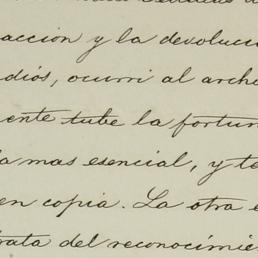 acción y la devolucc
dios, ocurrí al arch
ente tube la fortun
a mas esencial, y te
en copia. La otra e
rata del reconocimie